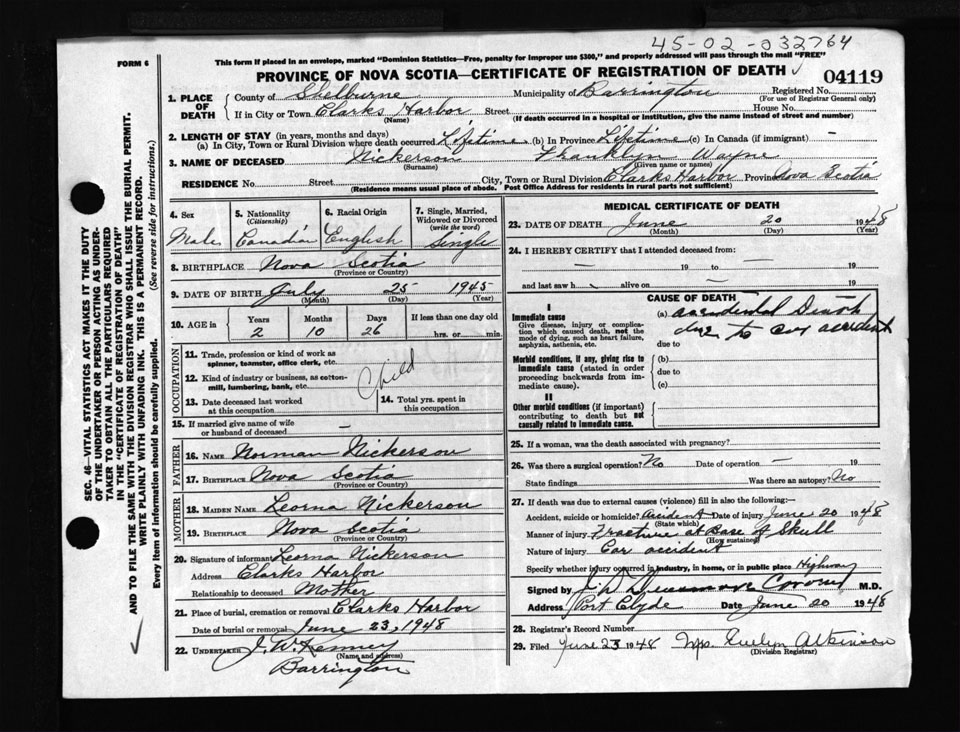 45-02-032764
FORM 6
This form if placed in an envelope, marked "Dominion Statistics—Free, penalty for improper use $300," and properly addressed will pass through the mail "FREE"
PROVINCE OF NOVA SCOTIA—CERTIFICATE OF REGISTRATION OF DEATH
04119
1. PLACE OF DEATH
County of Shelburne Municipality of Barrington Registered No.
(For use of Registrar General only)
If in City or Town Clarks Harbor Street House No.
(Name) (If death occurred in a hospital or institution, give the name instead of street and number)
2. LENGTH OF STAY (in years, months and days)
(a) In City, Town or Rural Division where death occurred Lifetime (b) In Province Lifetime (c) In Canada (if immigrant) —
3. NAME OF DECEASED Nickerson Franklyn Wayne
(Surname) (Given name or names)
RESIDENCE No. Street City, Town or Rural Division Clarks Harbor Province Nova Scotia
(Residence means usual place of abode. Post Office Address for residents in rural parts not sufficient)
4. Sex Male
5. Nationality (Citizenship) Canadian
6. Racial Origin English
7. Single, Married, Widowed or Divorced (write the word) Single
8. BIRTHPLACE Nova Scotia
(Province or Country)
9. DATE OF BIRTH July 25 1945
(Month) (Day) (Year)
10. AGE in Years Months Days If less than one day old
2 10 26 hrs. or min.
OCCUPATION
11. Trade, profession or kind of work as spinner, teamster, office clerk, etc.
12. Kind of industry or business, as cotton-mill, lumbering, bank, etc.
Child
13. Date deceased last worked at this occupation
14. Total yrs. spent in this occupation
15. If married give name of wife or husband of deceased —
FATHER
16. NAME Norman Nickerson
17. BIRTHPLACE Nova Scotia
(Province or Country)
MOTHER
18. MAIDEN NAME Leorna Nickerson
19. BIRTHPLACE Nova Scotia
(Province or Country)
20. Signature of informant Leorna Nickerson
Address Clarks Harbor
Relationship to deceased Mother
21. Place of burial, cremation or removal Clarks Harbor
Date of burial or removal June 23, 1948
22. UNDERTAKER J. W. Kenney
(Name and address)
Barrington
MEDICAL CERTIFICATE OF DEATH
23. DATE OF DEATH June 20 1948
(Month) (Day) (Year)
24. I HEREBY CERTIFY that I attended deceased from:
— 19 to — 19
and last saw h alive on — 19
CAUSE OF DEATH
I
Immediate cause
Give disease, injury or complication which caused death, not the mode of dying, such as heart failure, asphyxia, asthenia, etc.
(a) accidental Death
due to car accident
due to
Morbid conditions, if any, giving rise to immediate cause (stated in order proceeding backwards from immediate cause).
(b)
due to
(c)
II
Other morbid conditions (if important) contributing to death but not causally related to immediate cause.
25. If a woman, was the death associated with pregnancy?
26. Was there a surgical operation? No Date of operation — 19
State findings Was there an autopsy? No
27. If death was due to external causes (violence) fill in also the following:—
Accident, suicide or homicide? Accident Date of injury June 20 1948
(State which)
Manner of injury Fracture at Base of Skull
(How sustained)
Nature of injury Car accident
Specify whether injury occurred in industry, in home, or in public place Highway
Signed by Coroner M.D.
Address Port Clyde Date June 20 1948
28. Registrar's Record Number
29. Filed June 23 1948 Mrs. Evelyn Atkinson
(Division Registrar)
SEC. 46—VITAL STATISTICS ACT MAKES IT THE DUTY
OF THE UNDERTAKER OR PERSON ACTING AS UNDER-
TAKER TO OBTAIN ALL THE PARTICULARS REQUIRED
IN THE "CERTIFICATE OF REGISTRATION OF DEATH"
AND TO FILE THE SAME WITH THE DIVISION REGISTRAR WHO SHALL ISSUE THE BURIAL PERMIT.
WRITE PLAINLY WITH UNFADING INK. THIS IS A PERMANENT RECORD.
Every item of information should be carefully supplied. (See reverse side for instructions.)